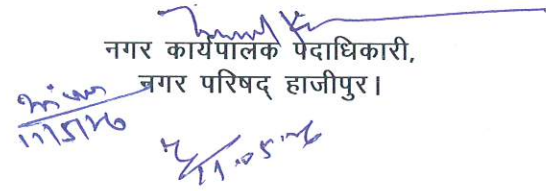 नगर कार्यपालक पदाधिकारी,
नगर परिषद् हाजीपुर।
11/5/26
11.05.26